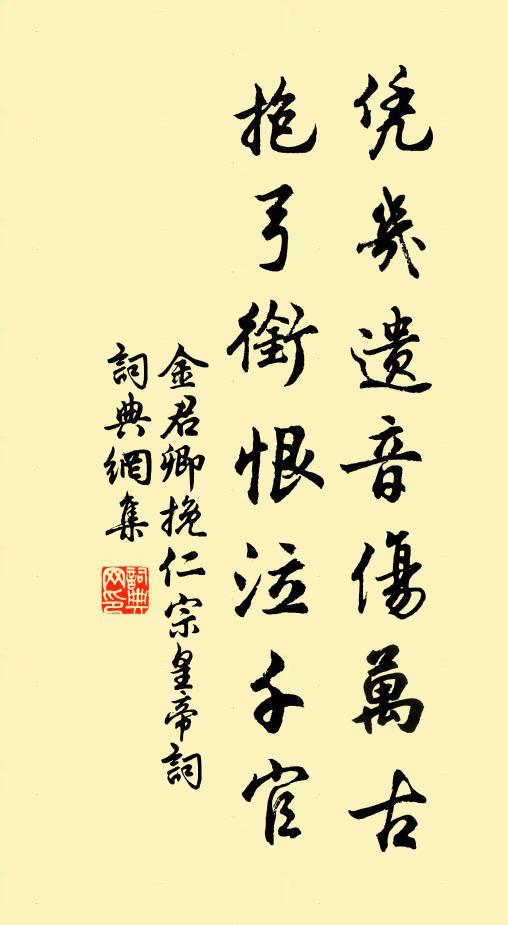 凭几遺音傷萬古
抱弓銜恨泣千官
金君卿挽仁宗皇帝詞
詞典網集
詞典网印